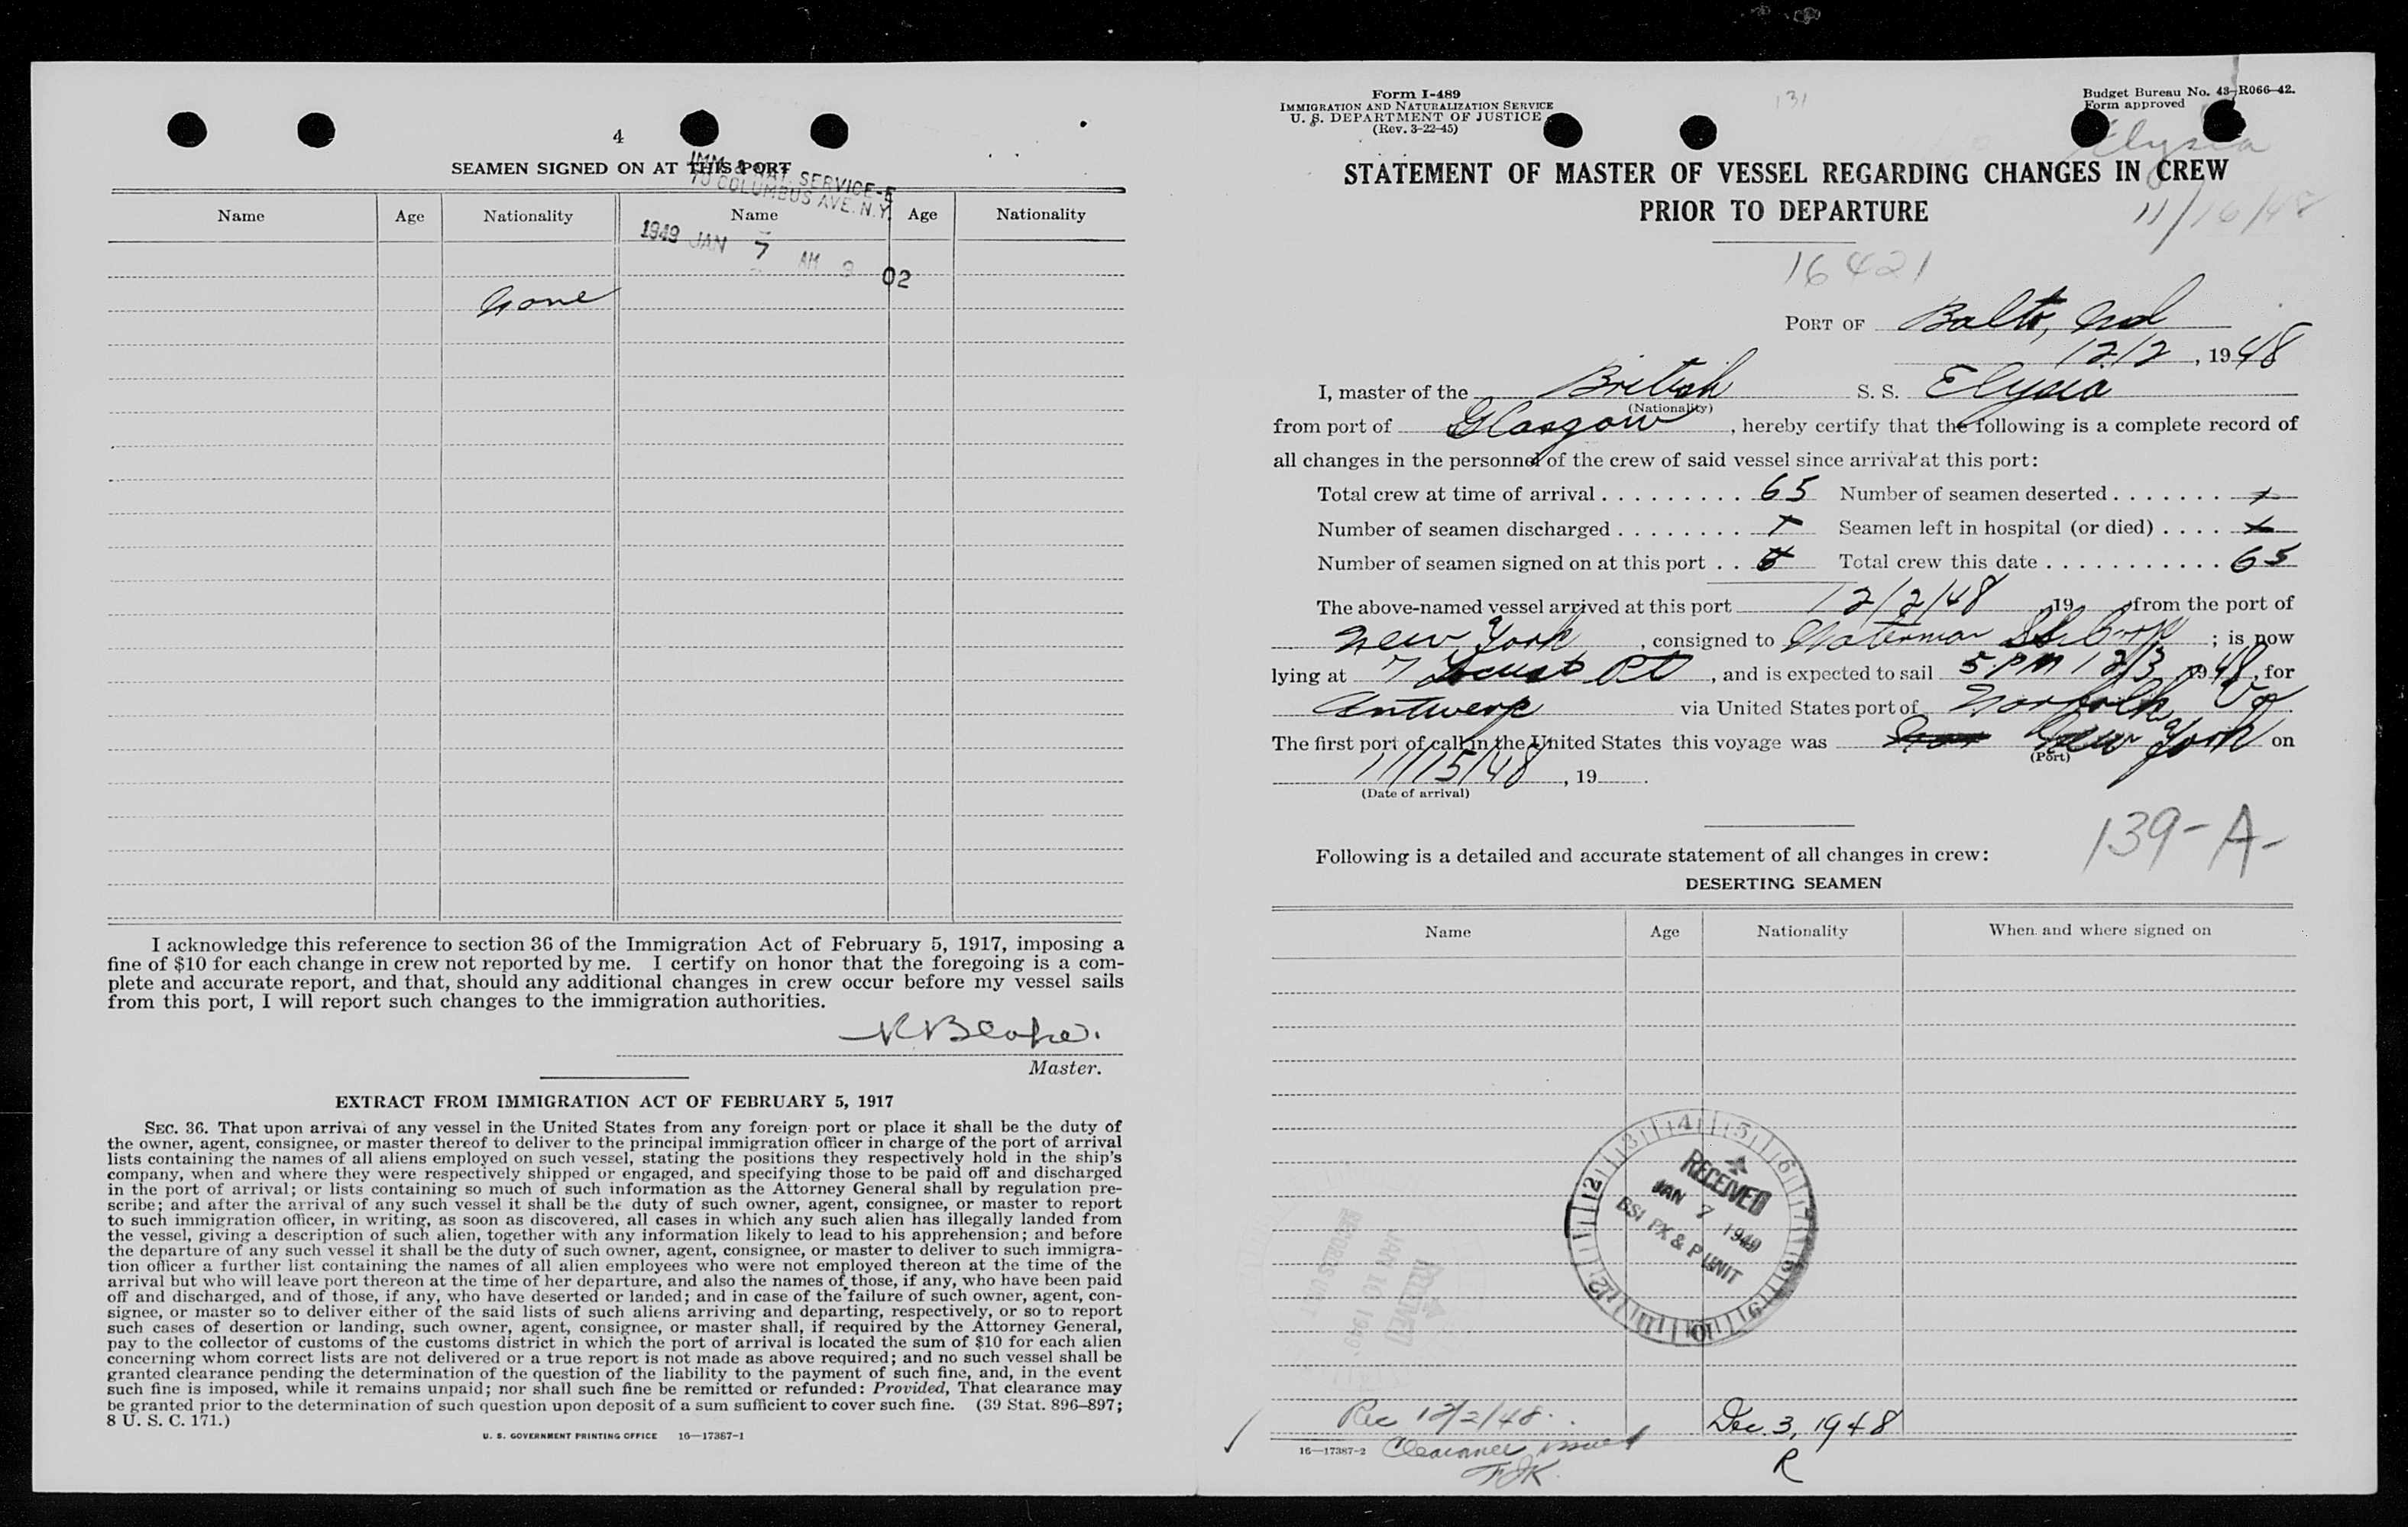 4
SEAMEN SIGNED ON AT THIS PORT
IMM & NAT. SERVICE-E
70 COLUMBUS AVE. N.Y.
Name Age Nationality Name Age Nationality
1949 JAN 7 AM 9 02
None
I acknowledge this reference to section 36 of the Immigration Act of February 5, 1917, imposing a
fine of $10 for each change in crew not reported by me. I certify on honor that the foregoing is a com-
plete and accurate report, and that, should any additional changes in crew occur before my vessel sails
from this port, I will report such changes to the immigration authorities.
Master.
EXTRACT FROM IMMIGRATION ACT OF FEBRUARY 5, 1917
SEC. 36. That upon arrival of any vessel in the United States from any foreign port or place it shall be the duty of
the owner, agent, consignee, or master thereof to deliver to the principal immigration officer in charge of the port of arrival
lists containing the names of all aliens employed on such vessel, stating the positions they respectively hold in the ship's
company, when and where they were respectively shipped or engaged, and specifying those to be paid off and discharged
in the port of arrival; or lists containing so much of such information as the Attorney General shall by regulation pre-
scribe; and after the arrival of any such vessel it shall be the duty of such owner, agent, consignee, or master to report
to such immigration officer, in writing, as soon as discovered, all cases in which any such alien has illegally landed from
the vessel, giving a description of such alien, together with any information likely to lead to his apprehension; and before
the departure of any such vessel it shall be the duty of such owner, agent, consignee, or master to deliver to such immigra-
tion officer a further list containing the names of all alien employees who were not employed thereon at the time of the
arrival but who will leave port thereon at the time of her departure, and also the names of those, if any, who have been paid
off and discharged, and of those, if any, who have deserted or landed; and in case of the failure of such owner, agent, con-
signee, or master so to deliver either of the said lists of such aliens arriving and departing, respectively, or so to report
such cases of desertion or landing, such owner, agent, consignee, or master shall, if required by the Attorney General,
pay to the collector of customs of the customs district in which the port of arrival is located the sum of $10 for each alien
concerning whom correct lists are not delivered or a true report is not made as above required; and no such vessel shall be
granted clearance pending the determination of the question of the liability to the payment of such fine, and, in the event
such fine is imposed, while it remains unpaid; nor shall such fine be remitted or refunded: Provided, That clearance may
be granted prior to the determination of such question upon deposit of a sum sufficient to cover such fine. (39 Stat. 896–897;
8 U. S. C. 171.)
U. S. GOVERNMENT PRINTING OFFICE 16—17387-1
Form I-489
IMMIGRATION AND NATURALIZATION SERVICE
U. S. DEPARTMENT OF JUSTICE
(Rev. 3-22-45)
131
Budget Bureau No. 43-R066-42.
Form approved
Elysia
STATEMENT OF MASTER OF VESSEL REGARDING CHANGES IN CREW
PRIOR TO DEPARTURE
11/16/48
16421
PORT OF Balto, Md
12/2, 1948
I, master of the British S. S. Elysia
(Nationality)
from port of Glasgow, hereby certify that the following is a complete record of
all changes in the personnel of the crew of said vessel since arrival at this port:
Total crew at time of arrival . . . . . . . . . 65 Number of seamen deserted . . . . . . .
Number of seamen discharged . . . . . . . . Seamen left in hospital (or died) . . . .
Number of seamen signed on at this port . . Total crew this date . . . . . . . . . . . 65
The above-named vessel arrived at this port 12/2/48, 19 , from the port of
New York, consigned to Waterman SS Corp; is now
lying at 7 Locust Pt, and is expected to sail 5 PM 12/3, 1948, for
Antwerp via United States port of Norfolk, Va.
The first port of call in the United States this voyage was New York on
(Port)
11/15/48, 19 .
(Date of arrival)
139-A-
Following is a detailed and accurate statement of all changes in crew:
DESERTING SEAMEN
Name Age Nationality When and where signed on
RECEIVED
JAN 7 1949
BSI PX & P UNIT
RECEIVED
JAN 10 1949
RECORDS UNIT
Rec 12/2/48.
Dec. 3, 1948
16—17387-2 Clearance issued
R
FJK.